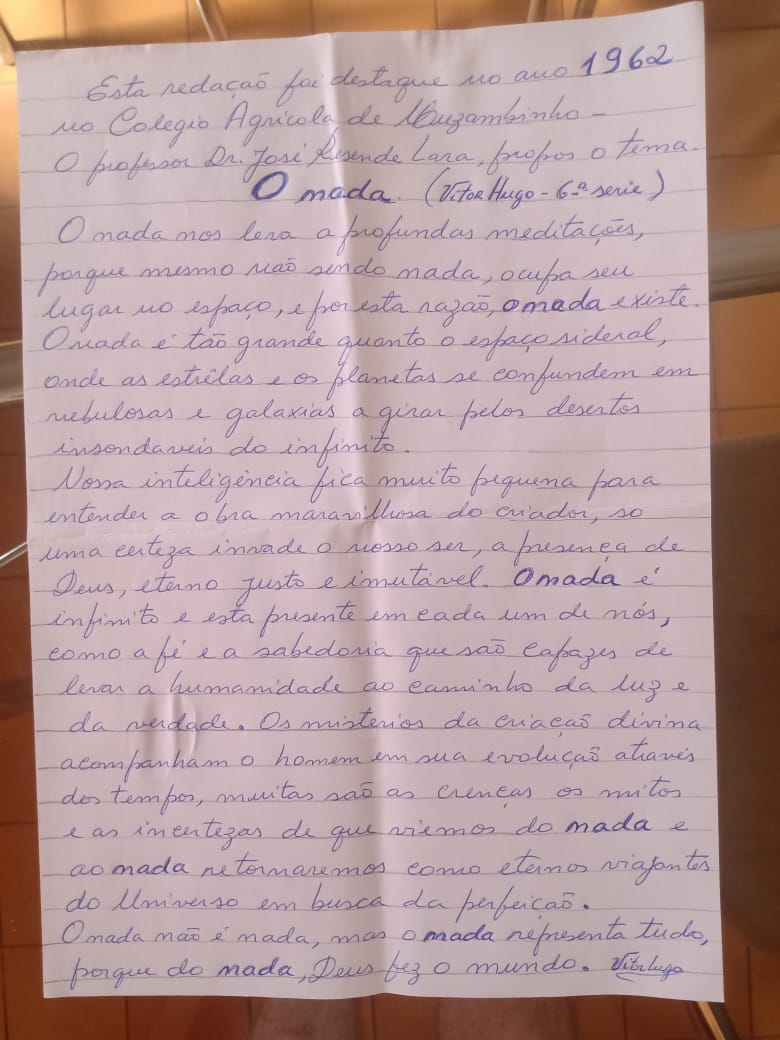 Esta redação foi destaque no ano 1962
no Colegio Agrícola de Muzambinho -
O professor Dr. José Resende Lara, propos o tema.
O nada. (Vitor Hugo - 6ª serie)
O nada nos leva a profundas meditações,
porque mesmo não sendo nada, ocupa seu
lugar no espaço, e por esta razão, o nada existe.
O nada é tão grande quanto o espaço sideral,
onde as estrêlas e os planetas se confundem em
nebulosas e galaxias a girar pelos desertos
insondaveis do infinito.
Nossa inteligência fica muito pequena para
entender a obra maravilhosa do criador, so
uma certeza invade o nosso ser, a presença de
Deus, eterno justo e imutável. O nada é
infinito e esta presente em cada um de nós,
como a fé e a sabedoria que são capazes de
levar a humanidade ao caminho da luz e
da verdade. Os misterios da criação divina
acompanham o homem em sua evolução através
dos tempos, muitas são as crenças os mitos
e as incertezas de que viemos do nada e
ao nada retornaremos como eternos viajantes
do Universo em busca da perfeição.
O nada não é nada, mas o nada representa tudo,
porque do nada, Deus fez o mundo. Vitor Hugo